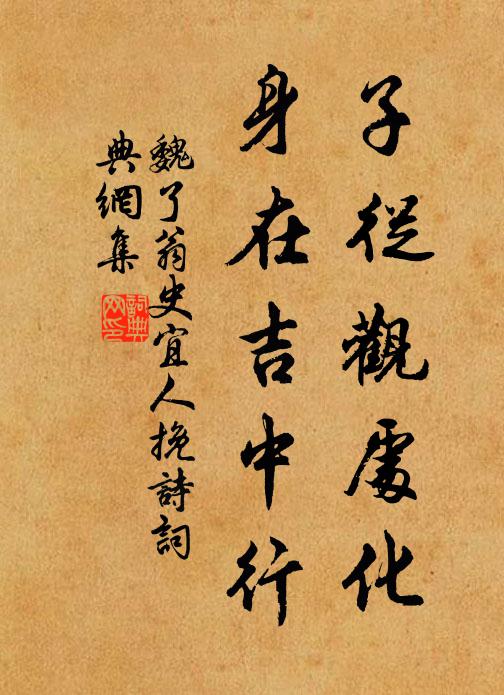 子從觀處化
身在吉中行
魏了翁史宜人挽詩詞
典網集
詞典網印